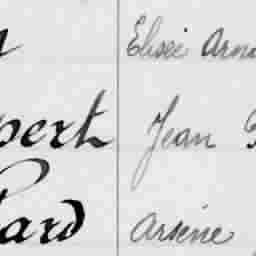 Elisée
pert Jean
ard Arsène